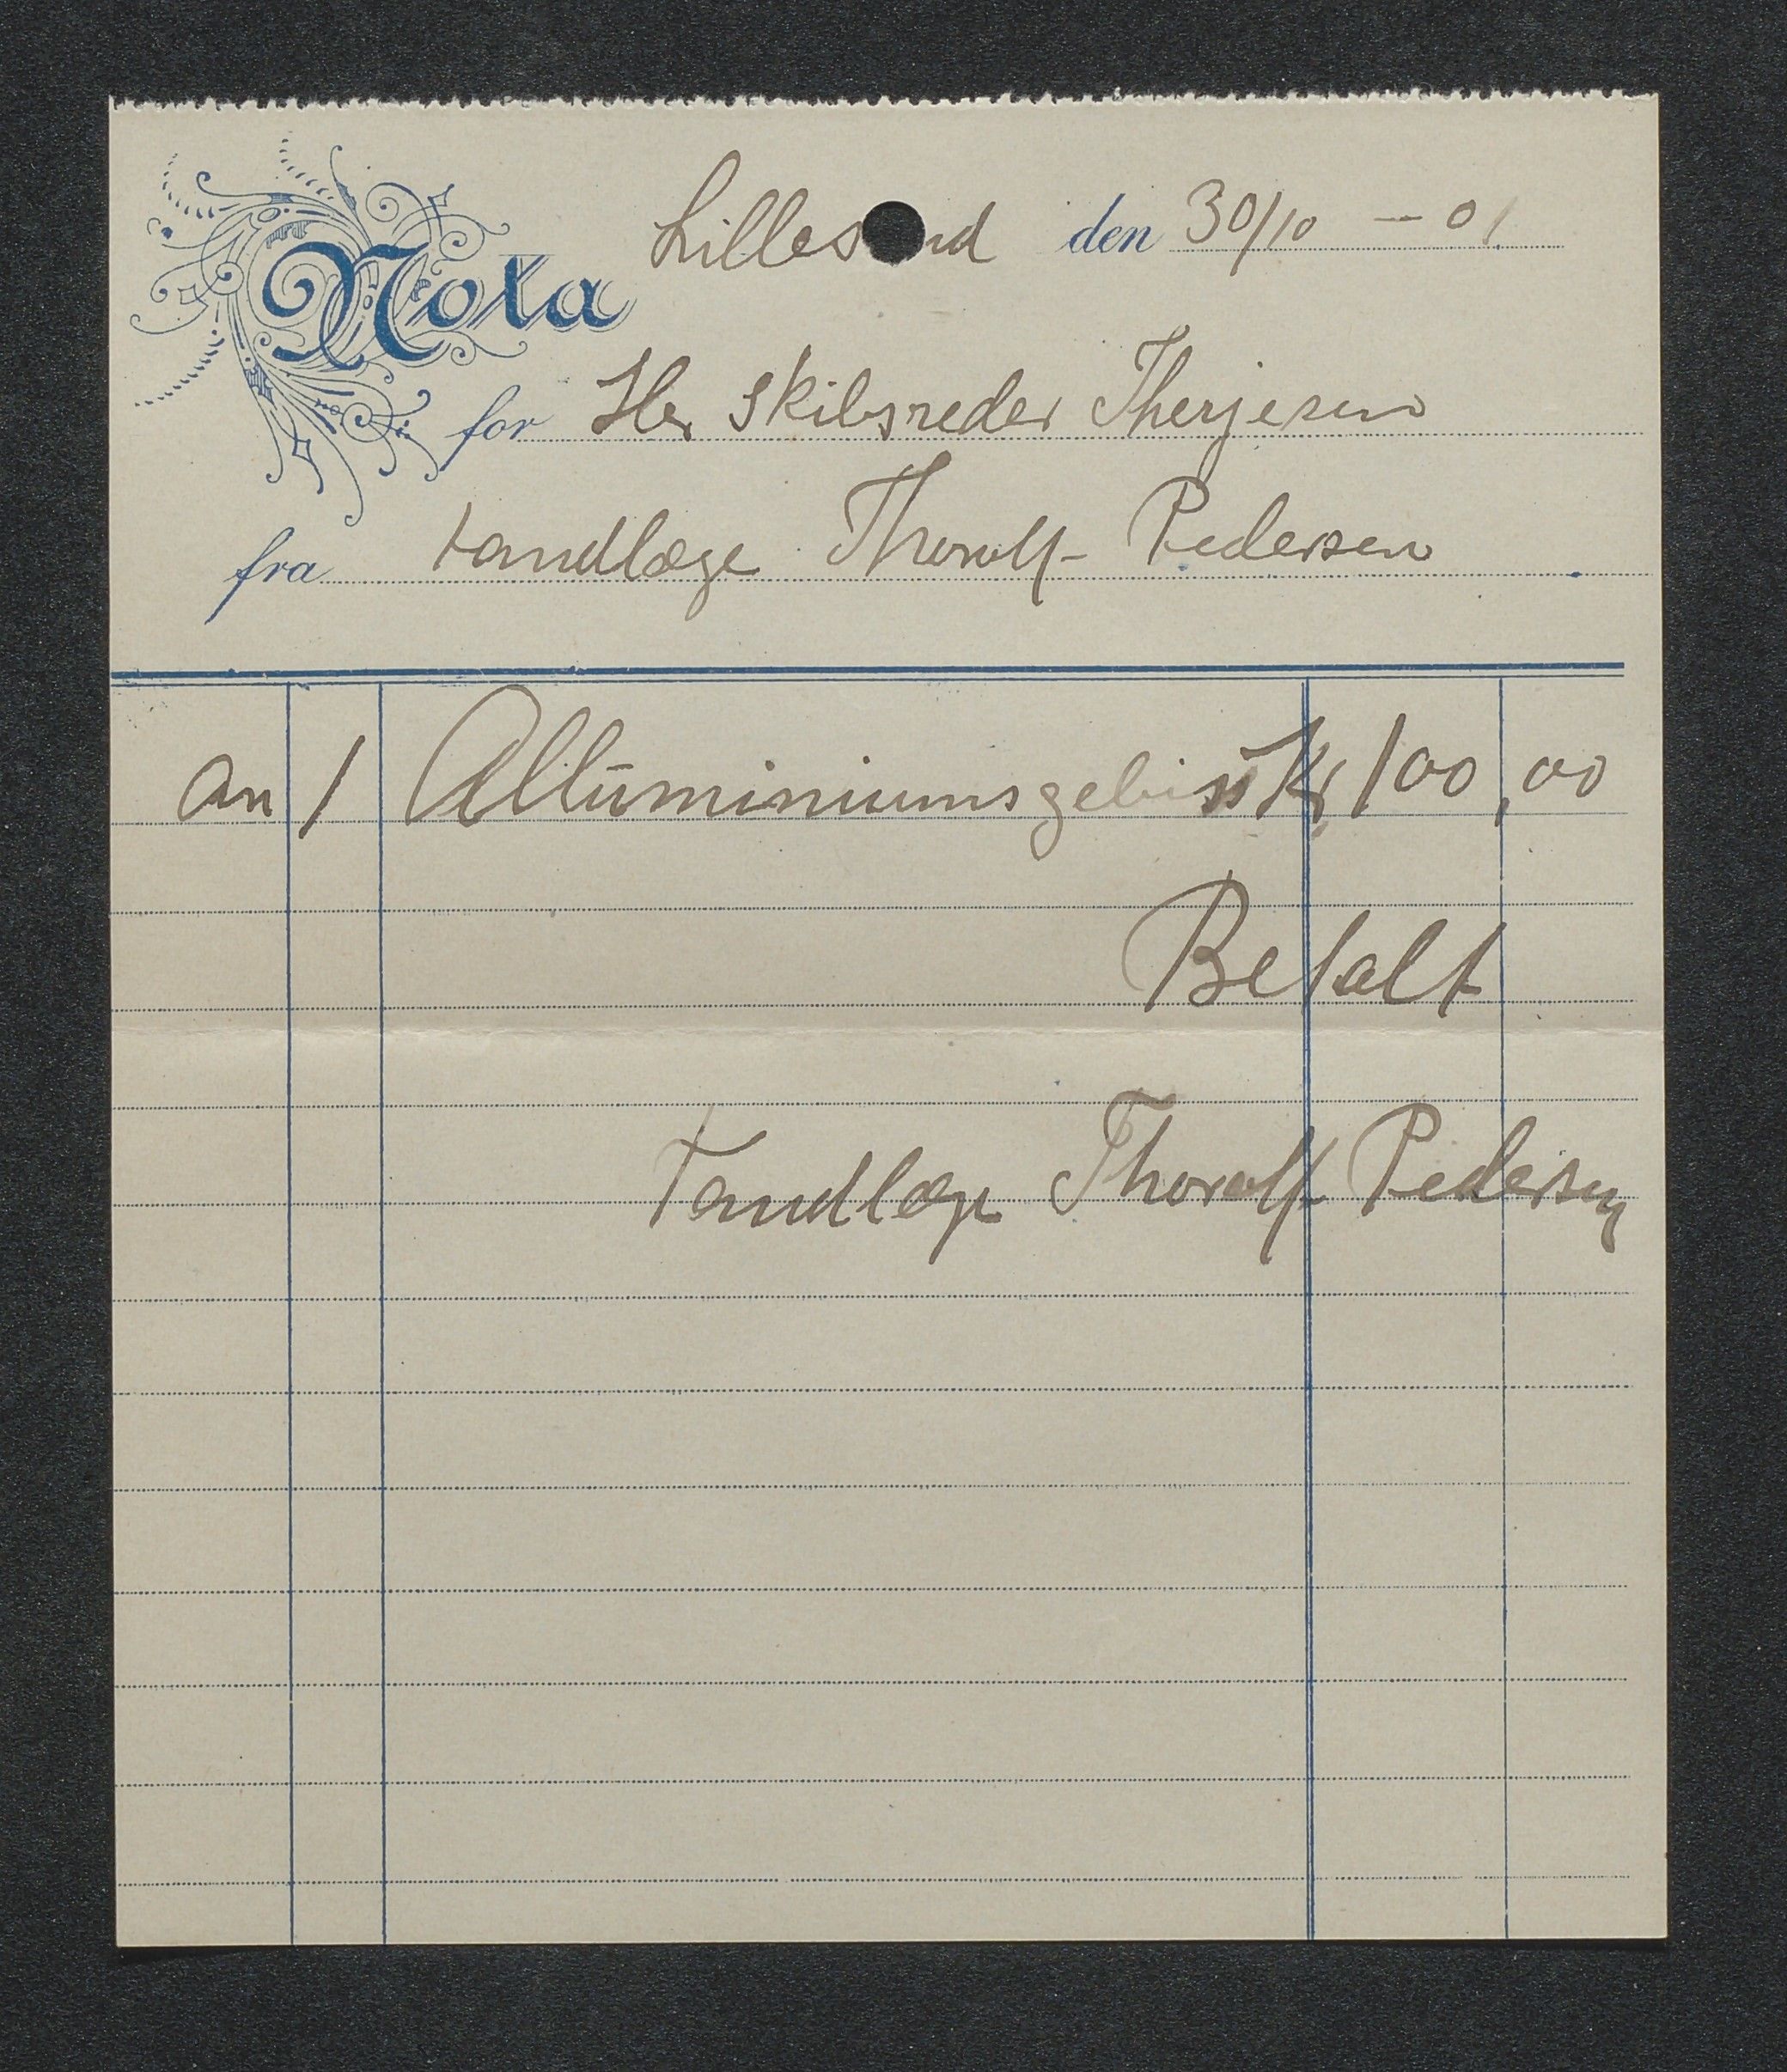 Nota
Lillesand den 30/10 - 01
for Hr Skibsreder Therjesen
fra tandlæge Thorolf Pedersen
an 1 Allūminiumsgebiss Kr 100,00
Betalt
Tandlæge Thorolf Pedersen